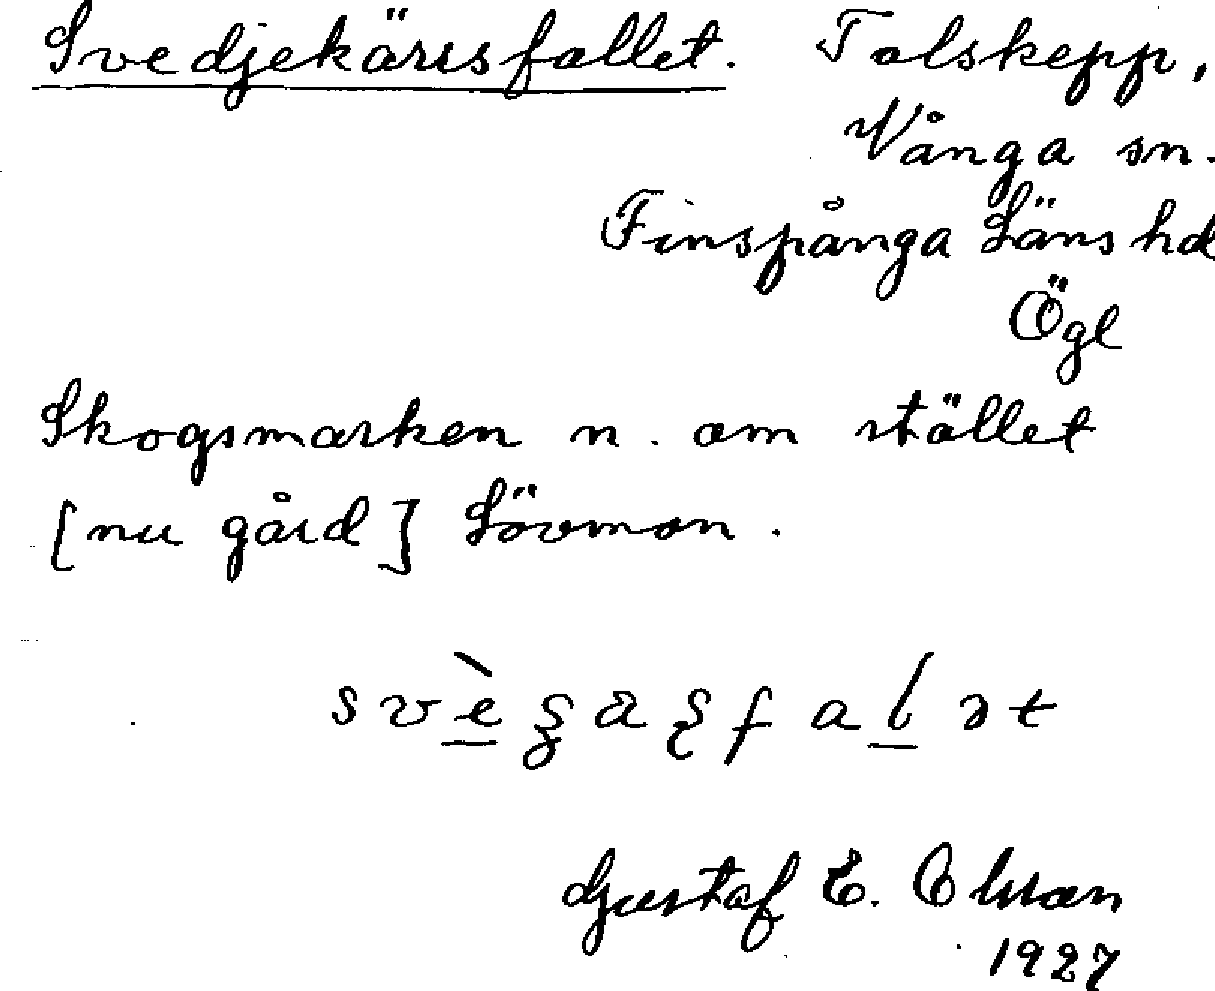 Svedjekärrsfallet. Tolskepp,
Vånga sn.
Finspånga Läns hd
Ögl
Skogsmarken n. om stället
[nu gård] Lövmon.
Gustaf E. Olsson
1927